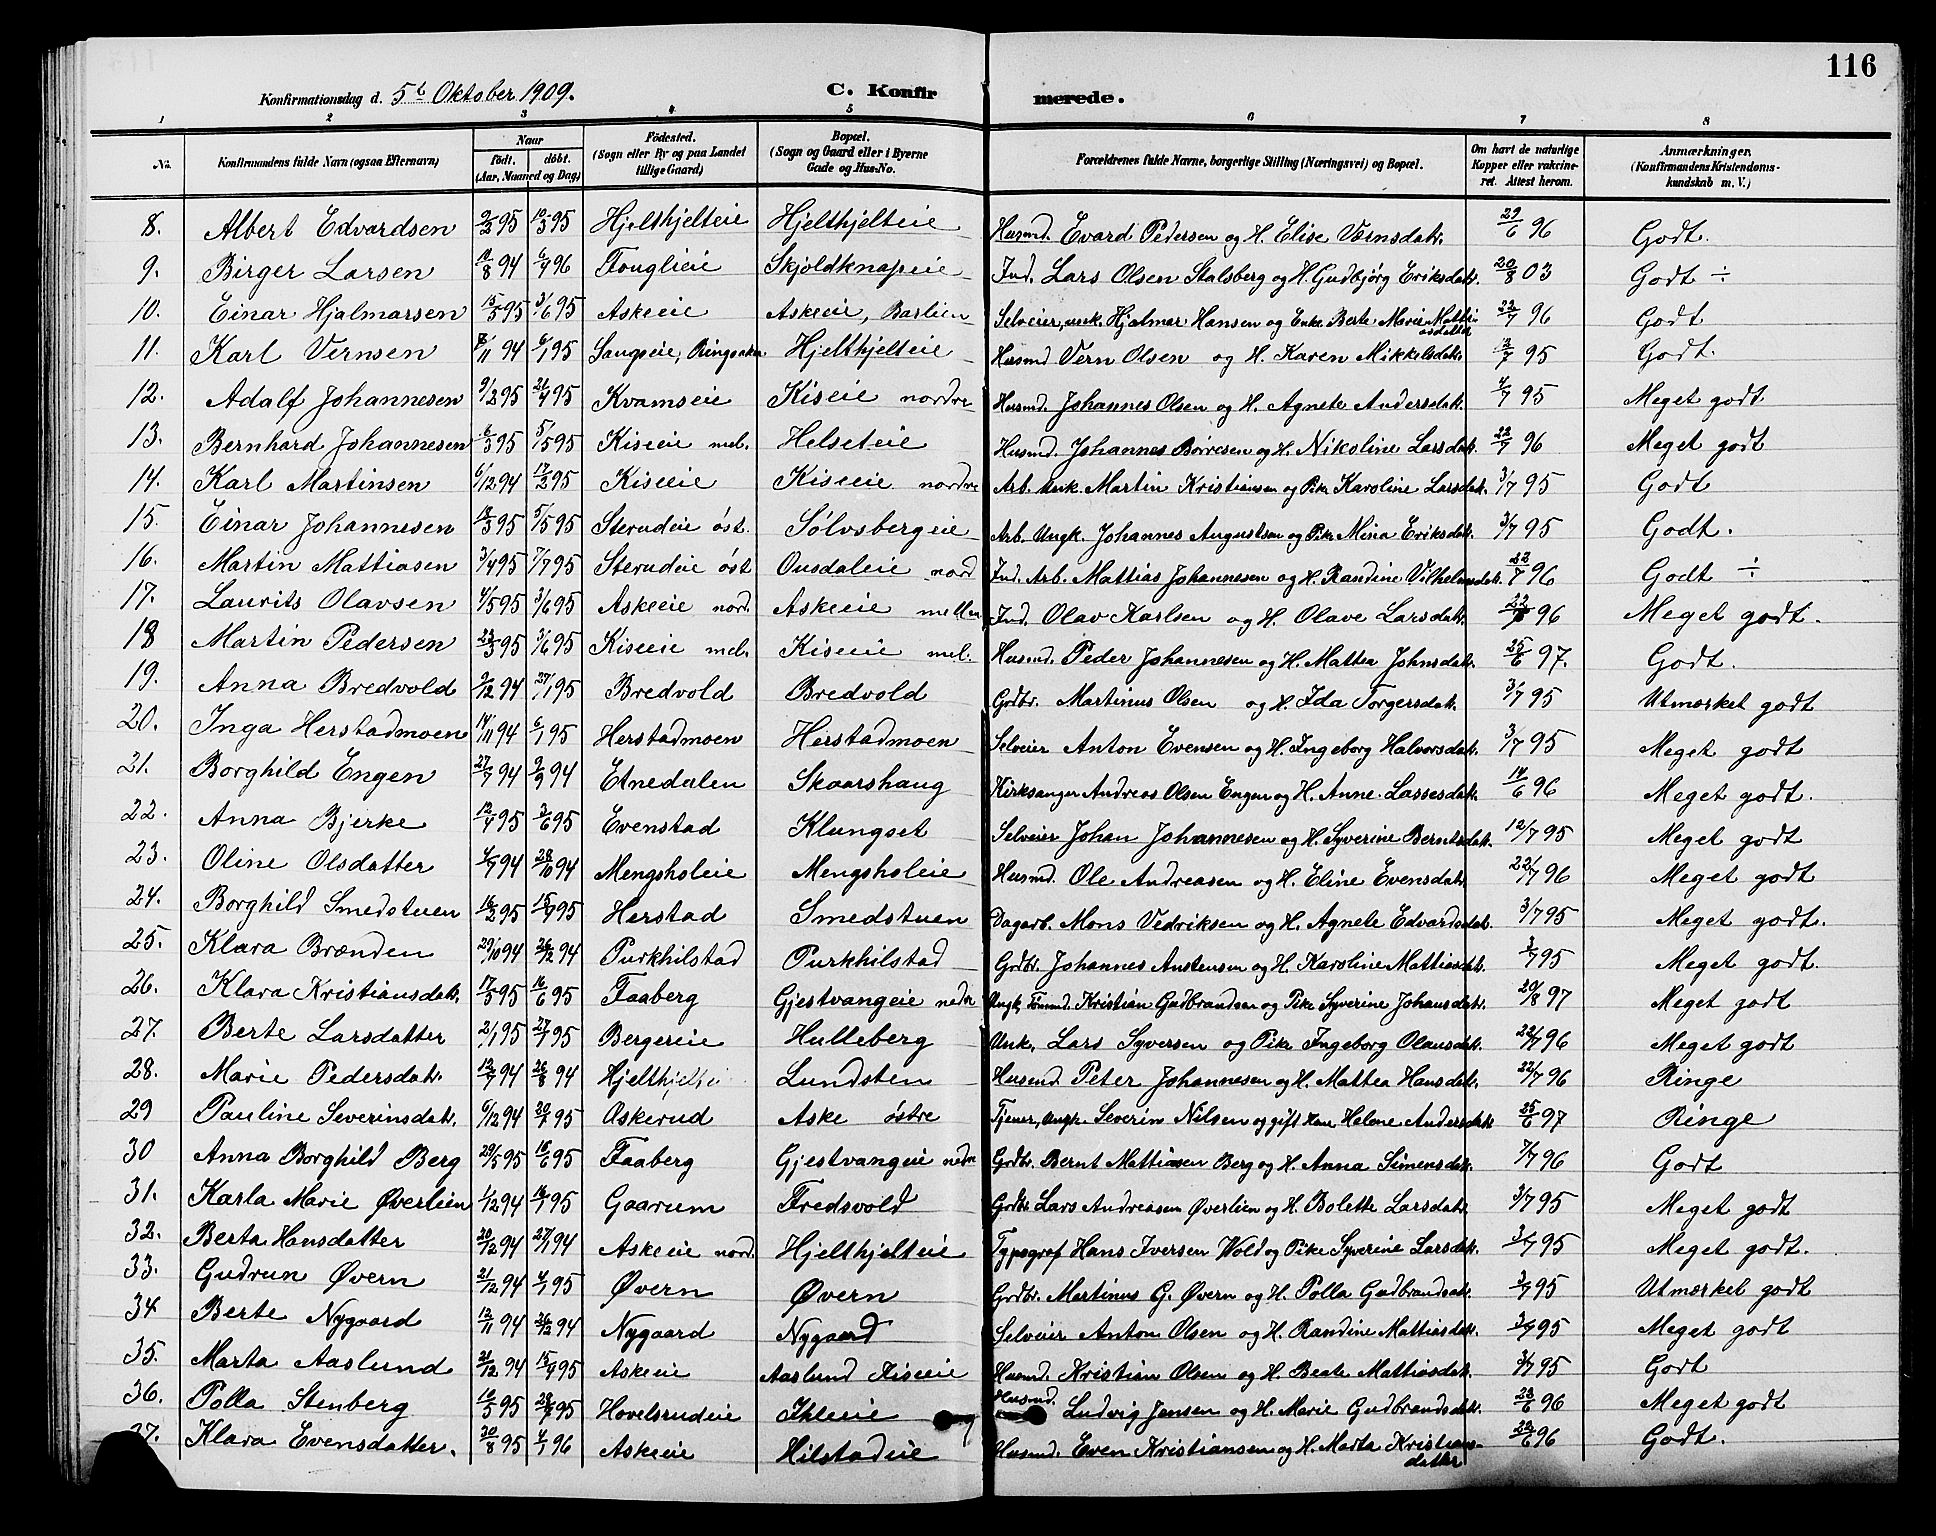 116
Konfirmationsdag d. 5t Oktober 1909. C. Konfirmerede.
1 2 3 4 5 6 7 8
No. Konfirmandens fulde Navn (ogsaa Efternavn) Naar født. døbt. (Aar, Maaned og Dag) Fødested. (Sogn eller By og paa Landet tillige Gaard) Bopæl. (Sogn og Gaard eller i Byerne Gade og Hus-No. Forældrenes fulde Navne, borgerlige Stilling (Næringsvei) og Bopæl. Om havt de naturlige Kopper eller vakcineret. Attest herom. Anmærkninger, (Konfirmandens Kristendomskundskab m. V.)
8. Albert Edvardsen 9/2 95 10/3 95 Hjelthjelteie Hjelthjelteie Husmd. Evard Pedersen og H. Elise Værnsdatr. 29/6 96 Godt.
9. Birger Larsen 11/8 94 6/4 96 Fouglieie Skjoldknapeie Ind. Lars Olsen Stalsberg og H. Gudbjörg Eriksdatr. 20/8 03 Godt ÷
10. Einar Hjalmarsen 15/5 95 3/6 95 Askeeie Askeeie, Barlien Selveier, unk. Hjalmar Hansen og Enke Berte Marie Mattiasdatter 22/7 96 Godt
11. Karl Vernsen 8/11 94 6/1 95 Saugseie, Ringsaker Hjelthjelteie Husmd Vern Olsen og H. Karen Mikkelsdatr. 12/7 95 Godt.
12. Adalf Johannesen 9/2 95 21/4 95 Kvamseie Kiseie nordre Husmd. Johannes Olsen og H. Agnete Andersdatr. 4/7 95 Meget godt
13. Bernhard Johannesen 6/3 95 5/5 95 Kiseeie mel. Helseteie Husmd. Johannes Börresen og H. Nikoline Larsdatr. 22/7 96 Meget godt
14. Karl Martinsen 6/12 94 17/2 95 Kiseeie Kiseeie nordre Arb. Unk. Martin Kristiansen og Pike Karoline Larsdatr. 3/7 95 Godt
15. Einar Johannesen 12/3 95 5/5 95 Sterudeie öst. Sölvsbergeie Arb. Ungk. Johannes Augustsen og Pike Mina Eriksdatr. 3/7 95 Godt.
16. Martin Mattiasen 3/4 95 7/7 95 Sterudeie öst Ousdaleie nord Ind. Arb. Mattias Johannesen og H. Randine Vilhelmsdatr. 22/7 96 Godt ÷
17. Laurits Olavsen 4/5 95 3/6 95 Askeeie nord. Askeeie mellem Ind. Olav Karlsen og H. Olave Larsdatr. 96 Meget godt.
18 Martin Pedersen 23/3 95 3/6 95 Kiseeie mel. Kiseeie mel. Husmd. Peder Johannesen og H. Mattea Johnsdatr. 25/6 97. Godt.
19. Anna Bredvold 9/12 94 27/1 95 Bredvold Bredvold Grdbr. Martinus Olsen og H. Ida Torgersdatr. 3/7 95 Utmærket godt
20. Inga Herstadmoen 14/11 94 6/1 95 Herstadmoen Herstadmoen Selveier Anton Evensen og H. Ingeborg Halvorsdatr. 3/7 95 Meget godt
21. Borghild Engen 27/7 94 2/9 94 Etnedalen Skaarshaug Kirksanger Andreas Olsen Engen og H. Anne Lassesdatr. 14/6 96 Meget godt.
22. Anna Bjerke 12/4 95 3/6 95 Evenstad Klungset Selveier Johan Johannesen og H. Syverine Berntsdatr. 12/7 95 Meget godt
23. Oline Olsdatter 4/9 94 28/10 94 Mengsholeie Mengsholeie Husmd. Ole Andreasen og H. Eline Evensdatr. 22/7 96 Meget godt
24. Borghild Smedstuen 16/2 95 15/4 95 Herstad Smedstuen Dagarb. Mons Vedriksen og H. Agnete Edvardsdatr. 3/7 95 Meget godt.
25. Klara Brænden 29/10 94 26/12 94 Purkhilstad Purkhilstad Grdbr. Johannes Anstensen og H. Karoline Mattiasdatr. 3/7 95 Meget godt.
26. Klara Kristiansdatr. 17/5 95 16/6 95 Faaberg Gjestvangeie nedre Ungk, Tömmd. Kristian Gudbrandsen og Pike Syverine Johansdatr. 20/8 97 Meget godt
27. Berte Larsdatter 2/1 95 95 Bergeeie Hulleberg Unk, Lars Syversen og Pike Ingeborg Olausdatr. 22/7 96 Meget godt
28. Marie Pedersdatr. 12/7 94 26/8 94 Hjelthjelt Lundsten Husmd. Peter Johannesen og H. Mattea Hansdatr. 22/7 96 Ringe
29 Pauline Severinsdatr. 6/12 94 95 Askerud Aske östre Tjener, Ungk. Severin Nilsen og gift Helene Andersdatr. 25/6 97 Ringe
30 Anna Borghild Berg 29/3 95 16/6 95 Faaberg Gjestvangeie nedre Grdbr. Bernt Mattiasen Berg og H. Anna Simensdatr. 7/7 96 Godt
31. Karla Marie Øverlien 1/12 94 95 Gaarum Fredsvold Grdbr. Lars Andreasen Øverlien og H. Bolette Larsdatr. 3/7 95 Meget godt
32. Berta Hansdatter 20/12 94 94 Askeeie nord. Hjelthjelteie Typograf Hans Iversen Wold og Pike Syverine Larsdatr. 3/7 95 Meget godt.
33. Gudrun Øvern 21/12 94 95 Øvern Øvern Grdbr. Martinus G. Øvern og H. Polla Gudbrandsdatr. 3/7 95 Utmærket godt
34 Berte Nygaard 12/11 94 26/12 94 Nygaard Nygaard Selveier Anton Olsen og H. Randine Mattiasdatr. 3/7 95 Meget godt
35. Marta Aaslund 21/12 94 15/4 95 Askeeie Aaslund Kiseeie Husmd. Kristian Olsen og H. Beate Mattiasdatr. 3/7 95 Godt
36. Polla Stenberg 10/5 95 95 Hovelsrudeie Ihleeie Husmd. Ludvig Jensen og H. Marie Gudbrandsdatr. 23/6 96 Meget godt
37. Klara Evensdatter. 20/8 95 96 Askeeie Hilstadeie Husmd. Even Kristiansen og H. Marta Kristiansdatter 23/6 96 Godt.